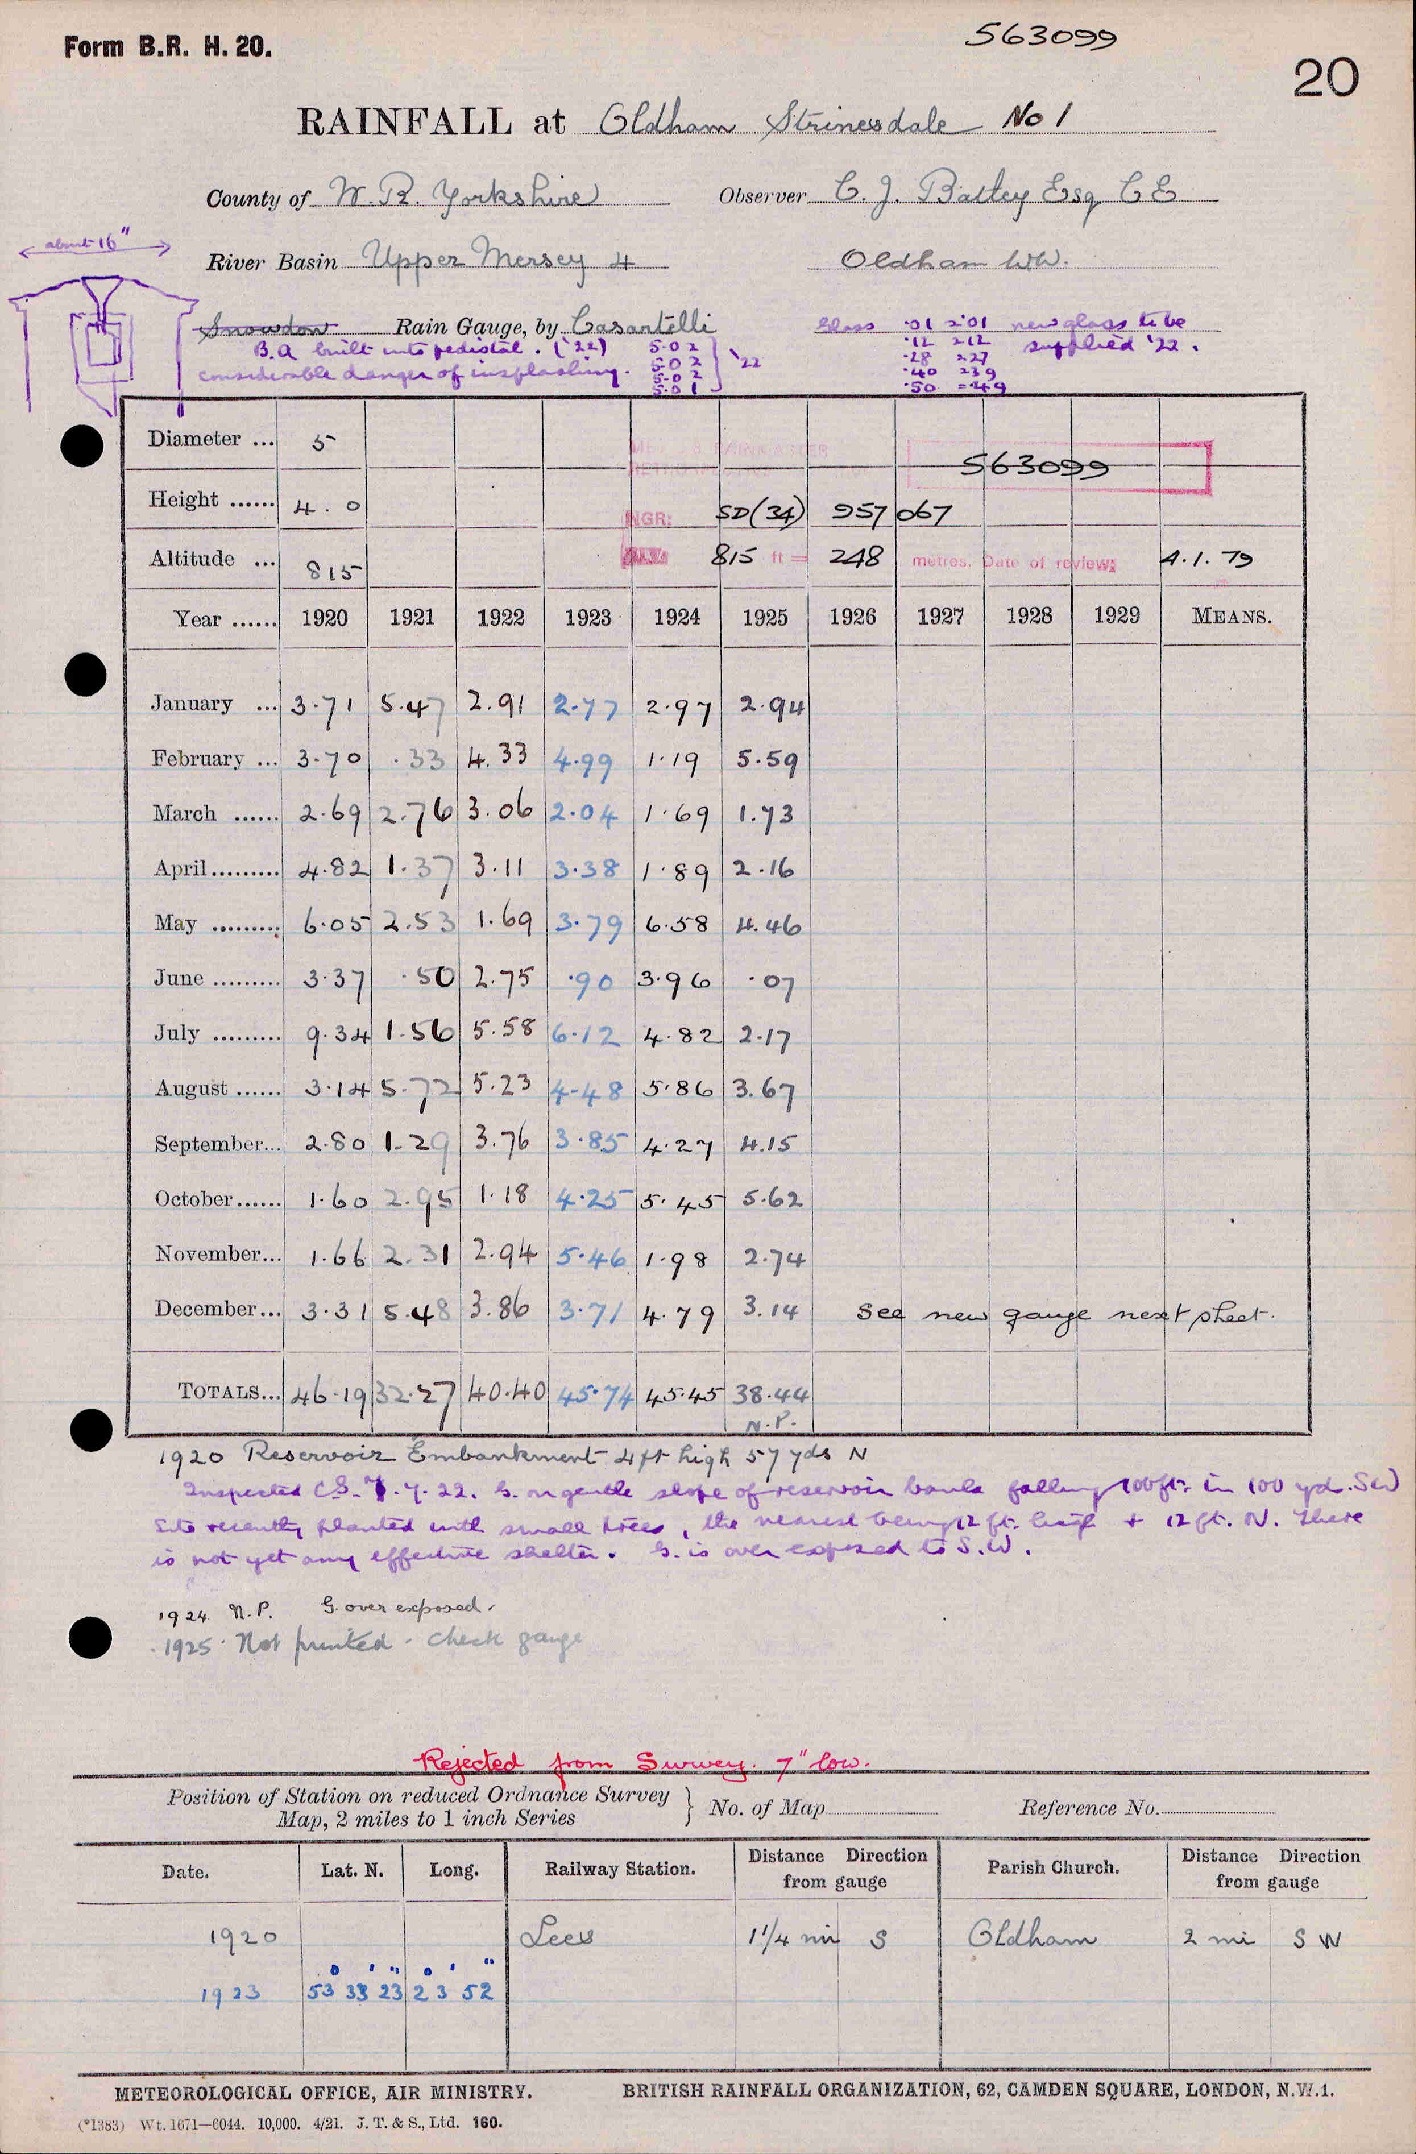 Form B.R. H. 20.
563099
20
RAINFALL at Oldham Strinesdale No 1
County of W. R. Yorkshire Observer C. J. Batley Esq C E
about 16"
River Basin Upper Mersey 4 Oldham WW.
Snowdon Rain Gauge, by Casartelli Glass .01 = .01 new glass to be
B.A built into pedistal. ('22) 5.02 .12 = .12 supplied '22.
considerable danger of insplashing. 5.02 '22 .28 = .27
5.02 .40 = .39
5.01 .50 = .49
Diameter ... 5 563099
Height ...... 4.0 NGR: SD(34) 957 067
Altitude ... 815 815 ft = 248 metres. Date of review: 4.1.79
Year ...... 1920 1921 1922 1923 1924 1925 1926 1927 1928 1929 MEANS.
January ... 3.71 5.47 2.91 2.77 2.97 2.94
February ... 3.70 .33 4.33 4.99 1.19 5.59
March ...... 2.69 2.76 3.06 2.04 1.69 1.73
April......... 4.82 1.37 3.11 3.38 1.89 2.16
May ......... 6.05 2.53 1.69 3.79 6.58 4.46
June ......... 3.37 .50 2.75 .90 3.96 .07
July ......... 9.34 1.56 5.58 6.12 4.82 2.17
August ...... 3.14 5.72 5.23 4.48 5.86 3.67
September... 2.80 1.29 3.76 3.85 4.27 4.15
October...... 1.60 2.95 1.18 4.25 5.45 5.62
November... 1.66 2.31 2.94 5.46 1.98 2.74
December... 3.31 5.48 3.86 3.71 4.79 3.14 See new gauge next sheet.
TOTALS... 46.19 32.27 40.40 45.74 45.45 38.44
N.P.
1920 Reservoir Embankment 4ft high 57 yds N
Inspected C.S. 7.7.22. G. on gentle slope of reservoir bank falling 100ft. in 100 yds. SW
Site recently planted with small trees, the nearest being 12 ft. high + 12 ft. N. There
is not yet any effective shelter. G. is over exposed to S.W.
1924 N.P. G. over exposed.
1925 Not printed - check gauge
Rejected from Survey. 7" low.
Position of Station on reduced Ordnance Survey
Map, 2 miles to 1 inch Series } No. of Map Reference No.
Date. Lat. N. Long. Railway Station. Distance from gauge Direction Parish Church. Distance from gauge Direction
1920 Lees 1 1/4 mi S Oldham 2 mi S W
1923 53° 33' 23" 2° 3' 52"
METEOROLOGICAL OFFICE, AIR MINISTRY. BRITISH RAINFALL ORGANIZATION, 62, CAMDEN SQUARE, LONDON, N.W.1.
(*1383) Wt. 1671—6044. 10,000. 4/21. J. T. & S., Ltd. 160.